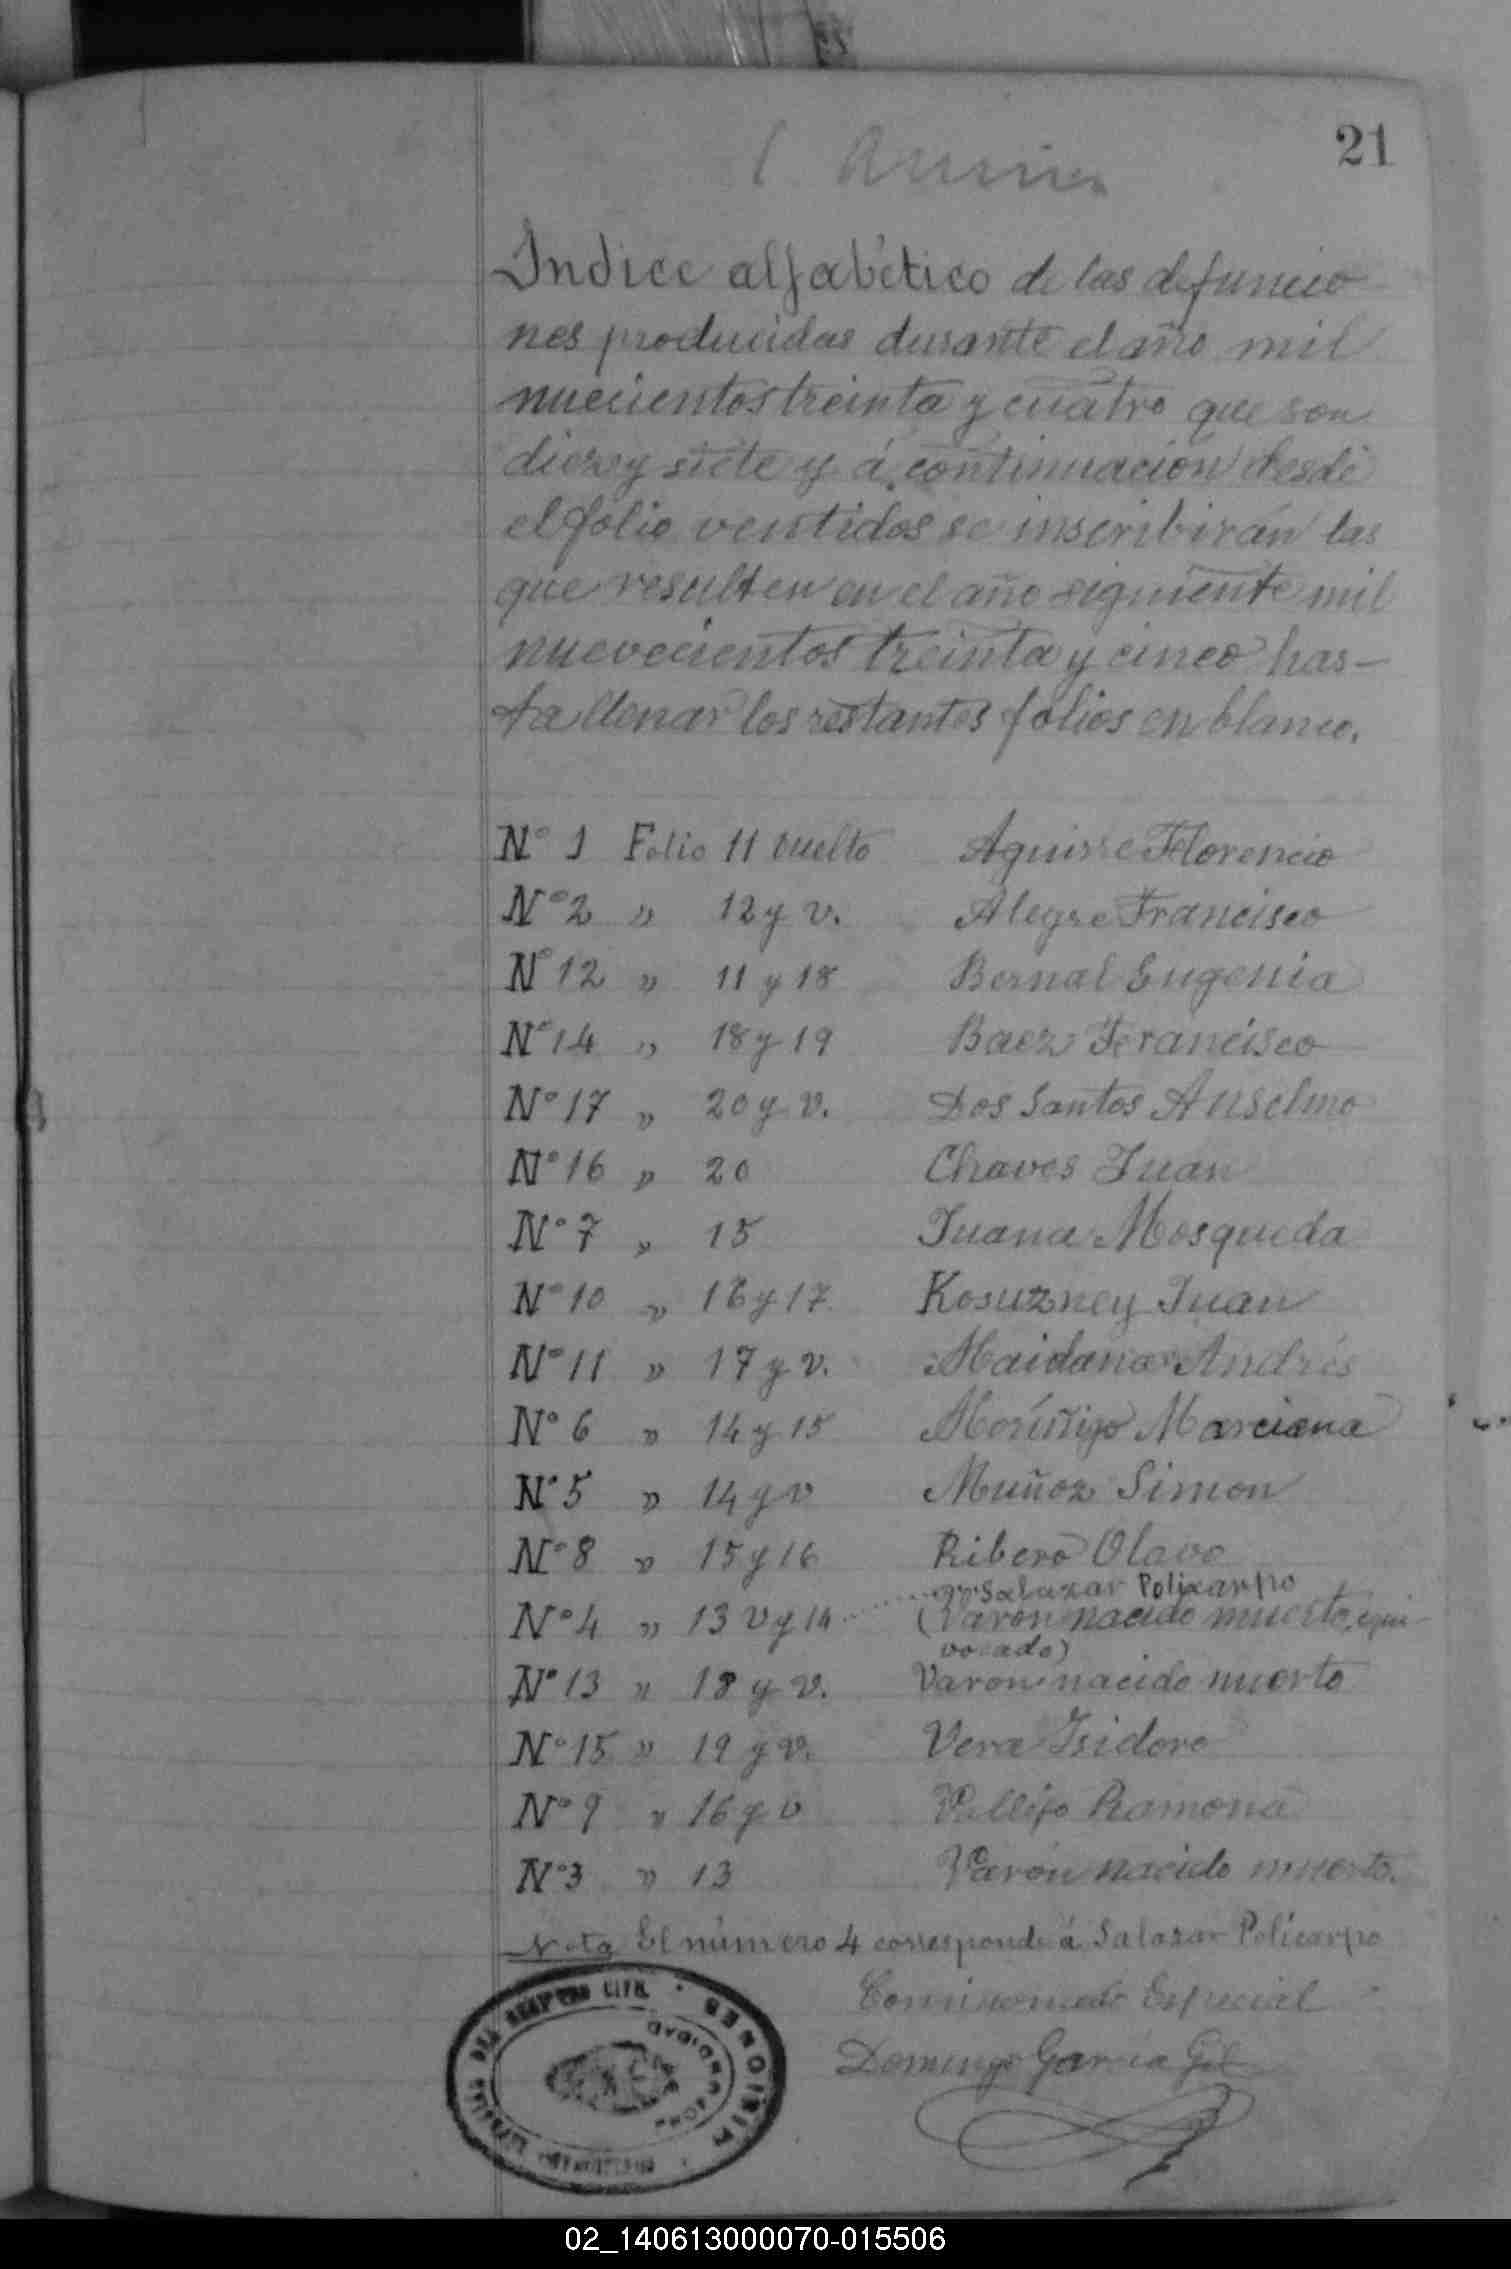 21
Indice alfabético de las defuncio
nes producidas durante el año mil
nuecientos treinta y cuatro que son
diez y siete y á continuación desde
el folio ventidos se inscribirán las
que resulten en el año siguiente mil
nuevecientos treinta y cinco has-
ta llenar los restantes folios en blanco.
Nº 1 Folio 11 vuelto Aguirre Florencio
Nº 2 " 12 y v. Alegre Francisco
Nº 12 " 11 y 18 Bernal Eugenia
Nº 14 " 18 y 19 Baez Francisco
Nº 17 " 20 y v. Dos Santos Anselmo
Nº 16 " 20 Chaves Juan
Nº 7 " 15 Juana Mosqueda
Nº 10 " 16 y 17 Kosuzney Juan
Nº 11 " 17 y v. Maidana Andrés
Nº 6 " 14 y 15 Moríñigo Marciana
Nº 5 " 14 y v Muñoz Simon
Nº 8 " 15 y 16 Ribero Olavo
Salazar Policarpo
Nº 4 " 13 v y 14 (Varon nacido muerto, equi
vocado)
Nº 13 " 18 y v. Varon nacido muerto
Nº 15 " 19 y v. Vera Isidoro
Nº 9 " 16 y v Vallejo Ramona
Nº 3 " 13 Varón nacido muerto.
Nota El número 4 corresponde á Salazar Policarpo
Comisionado Especial
Domingo García Gil
DEL REGISTRO CIVIL
MISIONES
02_140613000070-015506